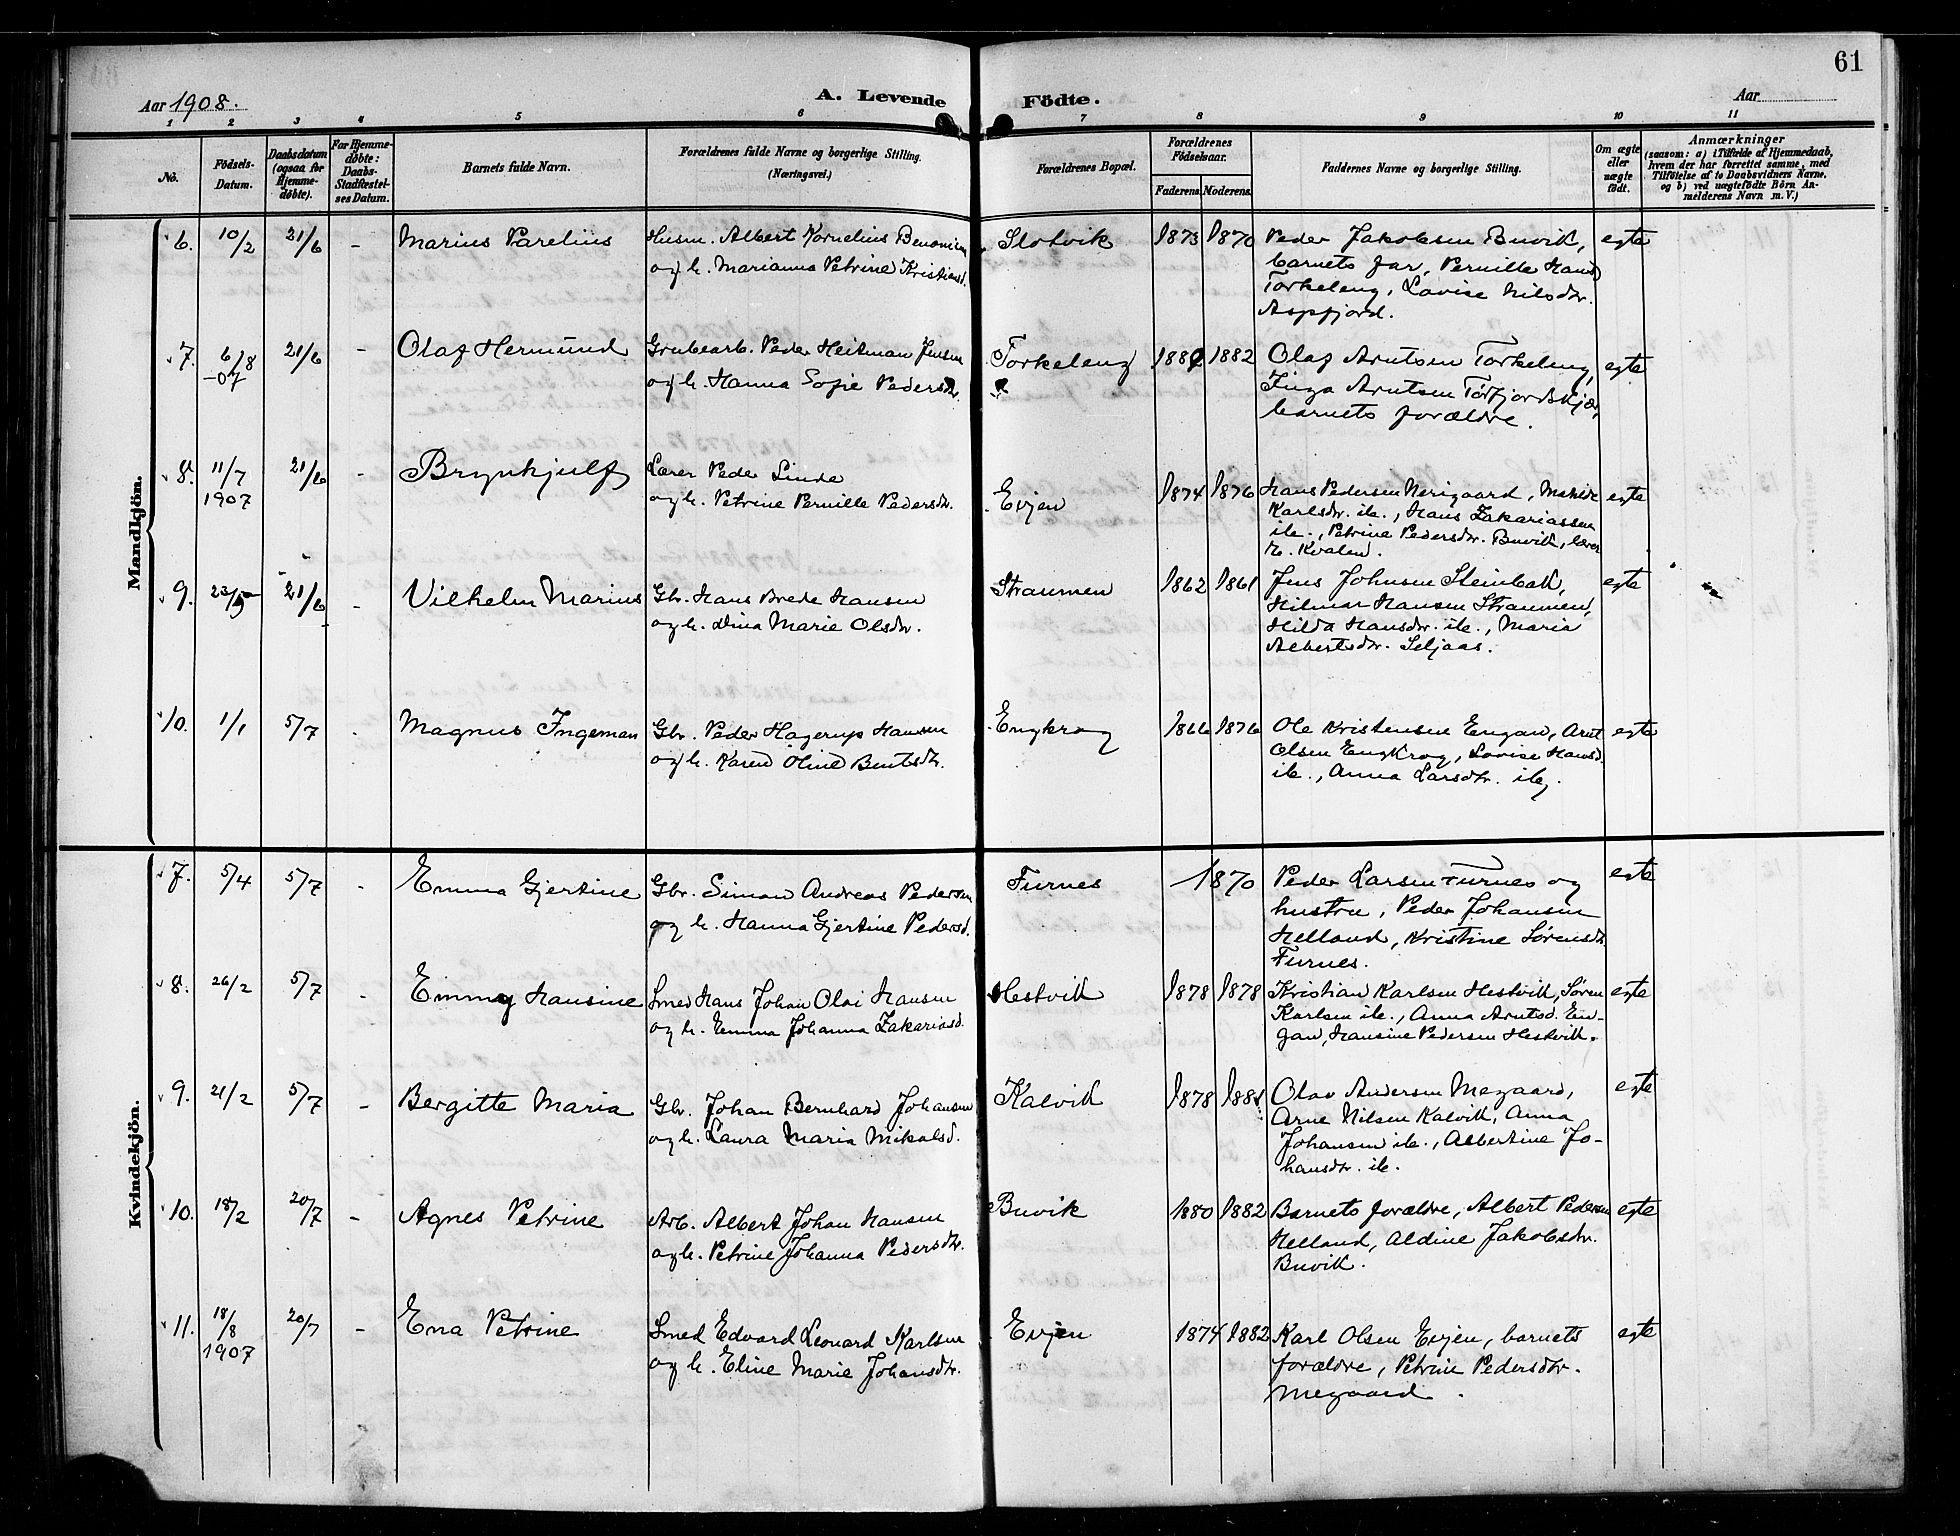 61
Aar 1908.
A. Levende Födte.
Aar
1 2 3 4 5 6 7 8 9 10 11
No.
Födsels-Datum.
Daabsdatum (ogsaa for Hjemme-döbte).
For Hjemme-döbte: Daabs-Stadfæstel-ses Datum.
Barnets fulde Navn.
Forældrenes fulde Navne og borgerlige Stilling.
(Næringsvei.)
Forældrenes Bopæl.
Forældrenes Födselsaar.
Faderens. Moderens.
Faddernes Navne og borgerlige Stilling.
Om ægte eller uægte födt.
Anmærkninger
(saasom: a) i Tilfælde af Hjemmedaab,
hvem der har forrettet samme, med
Tilföielse af to Daabsvidners Navne.
og b) ved uægtefödte Börn An-
melderens Navn m. V.)
Mandkjön.
6. 10/2 21/6 - Marius Parelius Husm. Albert Kornelius Benonisen Slotvik 1873 1870 Peder Jakobsen Buvik, egte
og h. Marianna Petrine Kristiansd. barnets far, Pernille Hansd
Torkeleng, Lovise Nilsdtr.
Aspfjord.
7. 6/8 -07 21/6 - Olaf Hermund Grubearb. Peder Heitman Jensen Torkeleng 1882 1882 Olaf Arntsen Torkeleng, egte
og h. Hanna Sofie Pedersdtr. Inga Arntsen Tørfjordskjær,
barnets forældre.
8. 11/7 1907 21/6 - Brynhjulf Lærer Peder Linde
og h. Petrine Pernille Pedersdtr. Evjen 1874 1876 Hans Pedersen Nerigaard, egte
Karlsdtr. ib., Hans Zakariassen
ib., Petrine Pedersdtr. Buvik, lærer
Kvalen.
9. 23/5 21/6 - Vilhelm Marius Gbr. Hans Brede Hansen Straumen 1862 1861 Jens Johnsen Steinbak, egte
og h. Dina Marie Olsdtr. Hilmar Hansen Straumen,
Hilda Hansdtr. ib., Maria
Albertsdtr. Seljaas.
10. 1/1 5/7 Magnus Ingeman Gbr. Peder Hagerup Hansen Engkrog 1866 1876 Ole Kristensen Engan, Arnt egte
og h. Karen Oline Bentsdtr. Olsen Engkrog, Lovise Hansd.
ib., Anna Larsdtr. ib.
Kvindekjön.
7. 5/4 5/7 - Emma Gjertine Gbr. Simon Andreas Pedersen Furnes 1870 Peder Larsen Furnes og egte
og h. Hanna Gjertine Pedersd. hustru, Peder Johansen
Helland, Kristine Sørensdtr.
Furnes.
8. 26/2 5/7 - Emmy Hansine Smed Hans Johan Olai Hansen Hestvik 1878 1878 Kristian Karlsen Hestvik, Søren egte
og h. Emma Johanna Zakariasd. Karlsen ib., Anna Arntsd. En-
gan, Hansine Pedersen Hestvik.
9. 21/2 5/7 - Bergitte Maria Gbr. Johan Bernhard Johansen Kalvik 1878 Olav Andersen Megaard, egte
og h. Laura Maria Mikalsd. Arne Nilsen Kalvik, Anna
Johansen ib., Albertine Jo-
hansdtr. ib.
10. 18/2 20/7 - Agnes Petrine Arb. Albert Johan Hansen Buvik 1880 1882 Barnets forældre, Albert Pedersen egte
og h. Petrine Johanna Pedersdtr. Helland, Aldine Jakobsdtr.
Buvik.
11. 18/8 1907 20/7 - Ena Petrine Smed Edvard Leonard Karlsen Evjen 1874 1882 Karl Olsen Evjen, barnets egte
og h. Eline Marie Johansdtr. forældre, Petrine Pedersdtr.
Megaard.